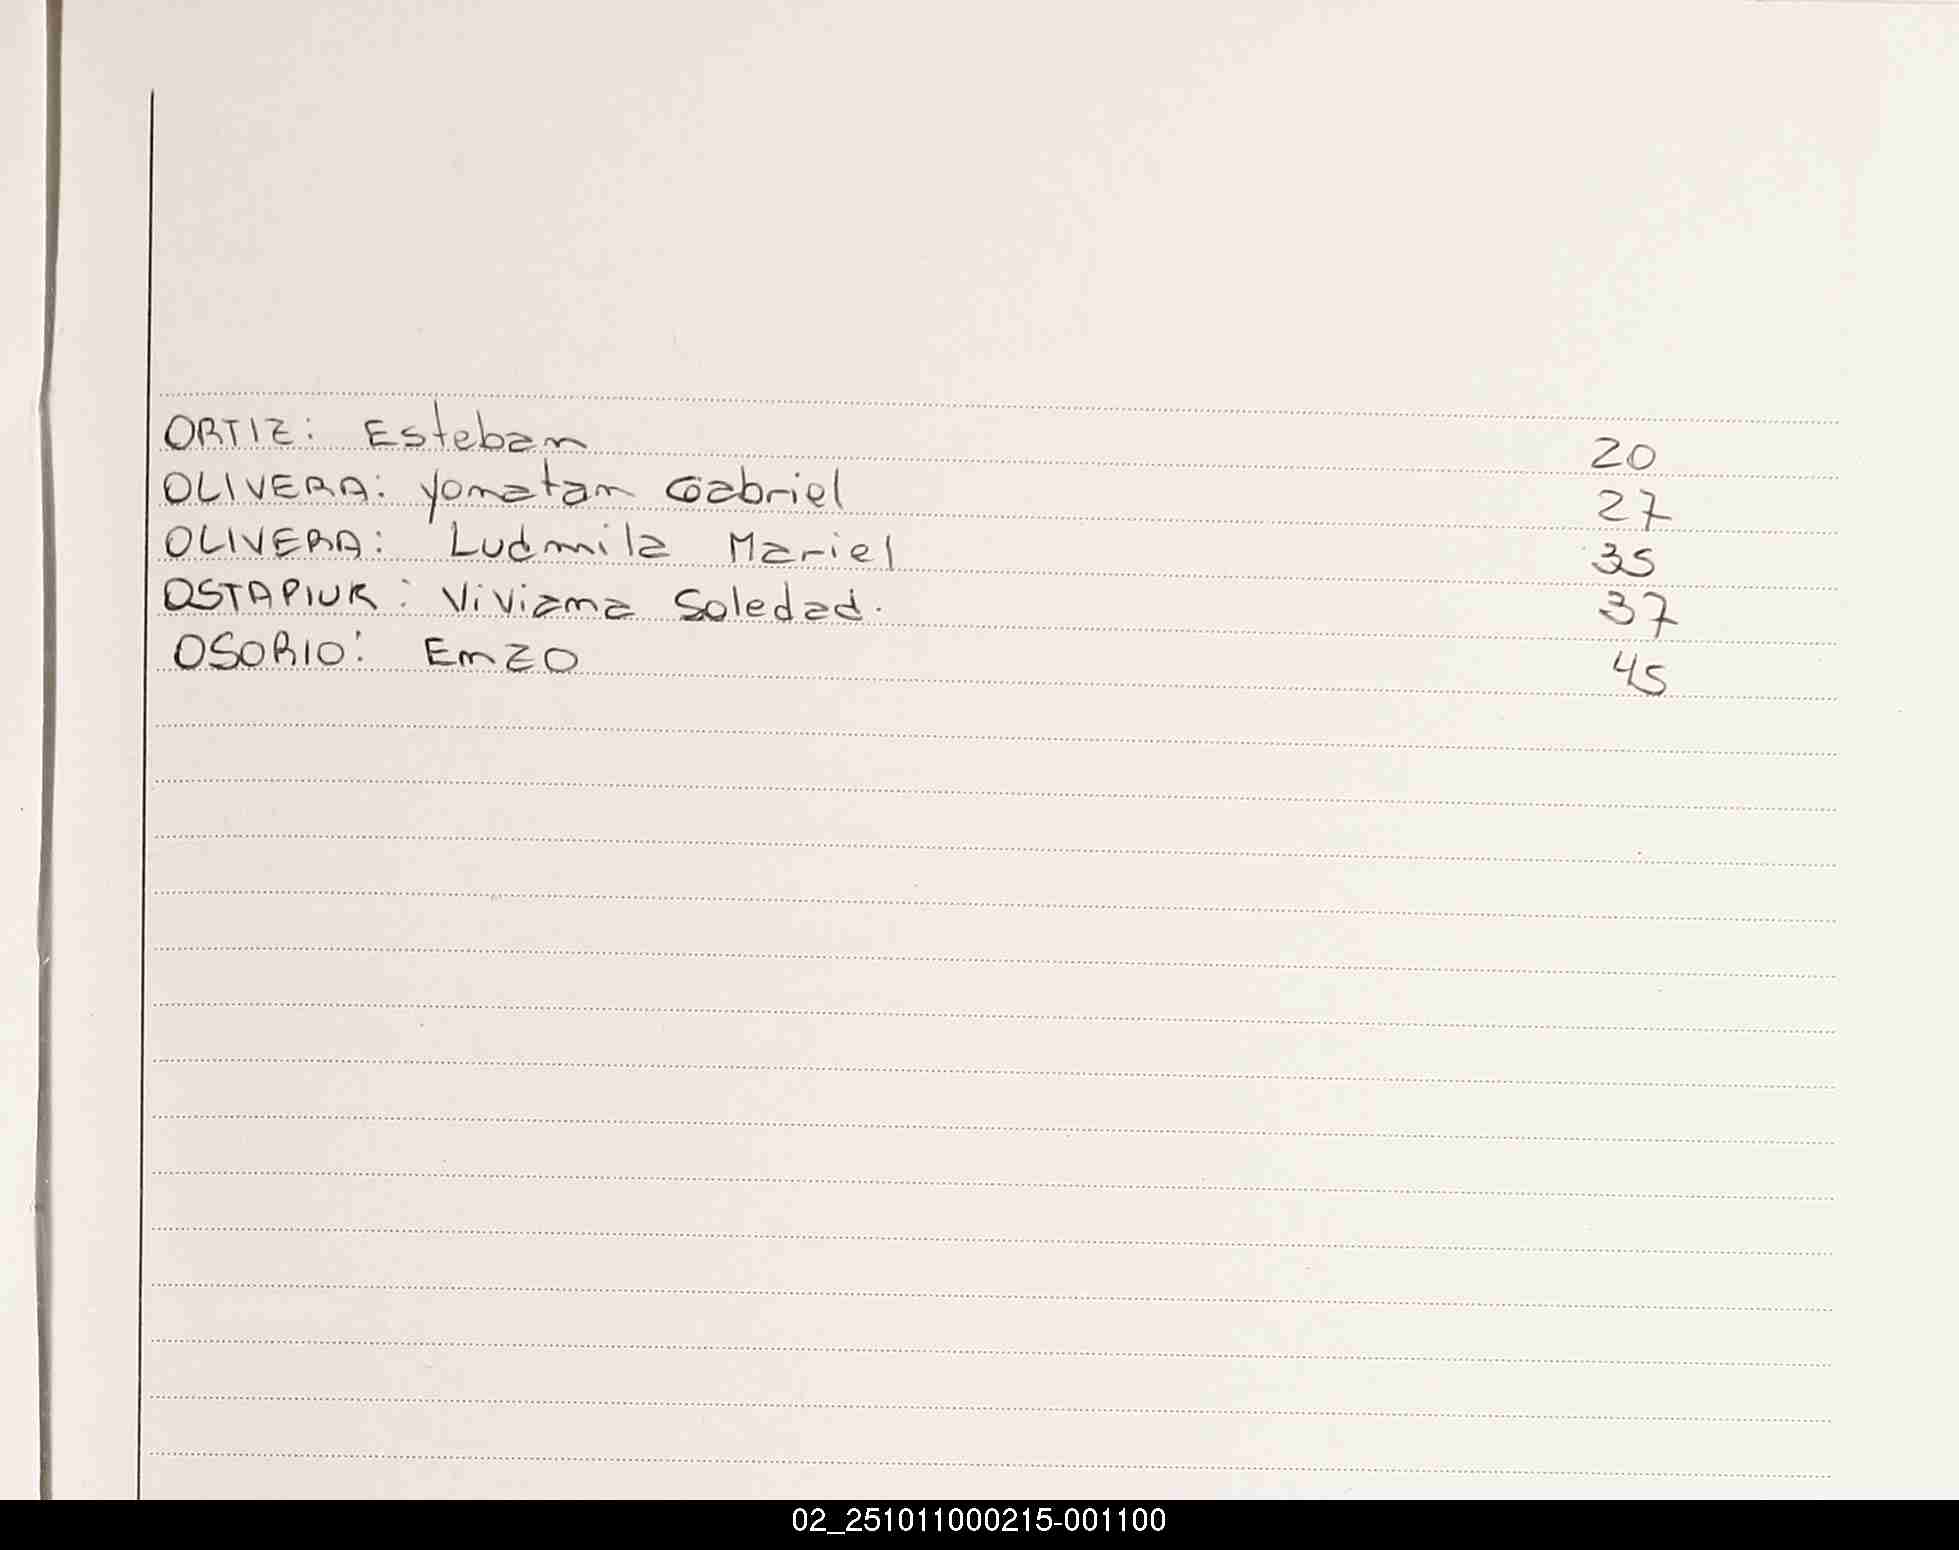 ORTIZ: Esteban 20
OLIVERA: Yonatan Gabriel 27
OLIVERA: Ludmila Mariel 35
OSTAPIUK: Viviana Soledad. 37
OSORIO: Enzo 45
02_251011000215-001100